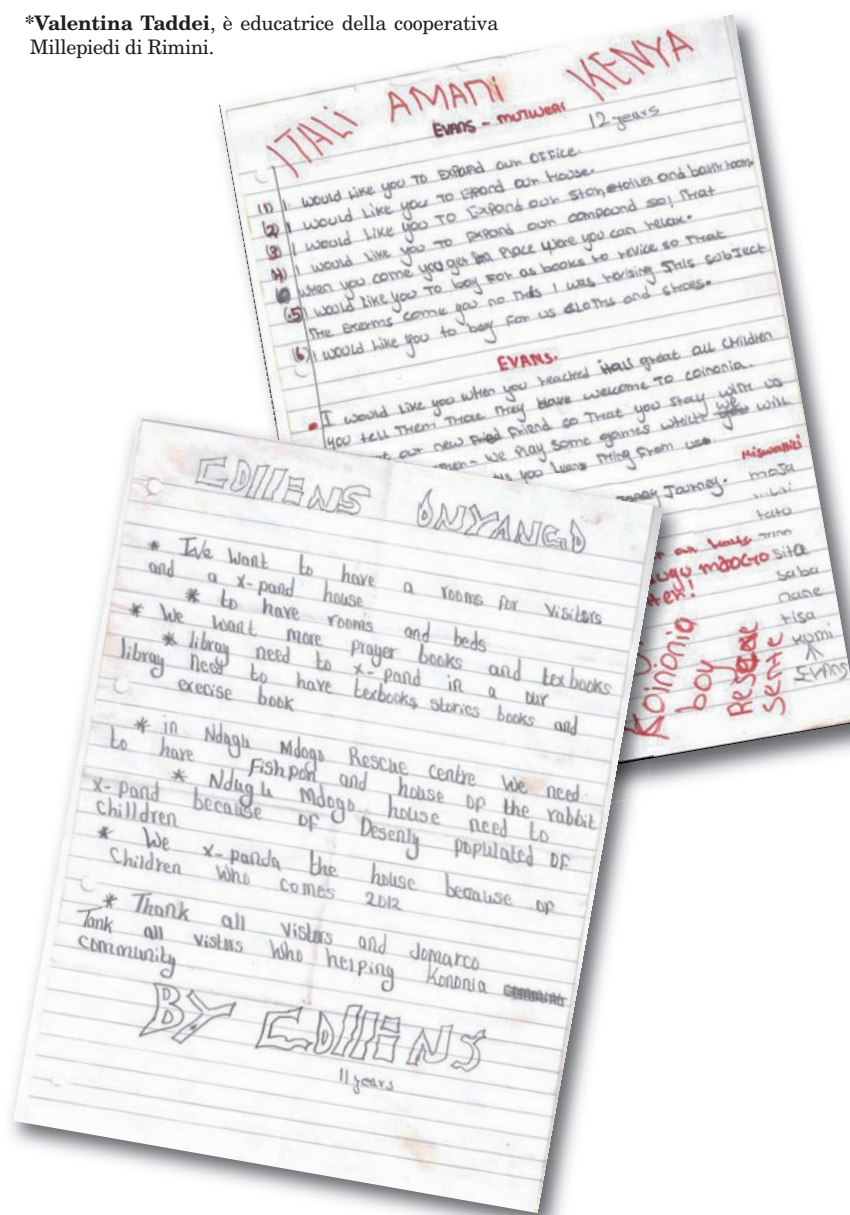 *Valentina Taddei, è educatrice della cooperativa
Millepiedi di Rimini.
ITALI AMANI KENYA
EVANS - MUTUWERI 12 years
(1) I would Like you TO Expand our OFFice.
(2) I would Like you TO Expand our House.
(3) I would Like you TO Expand our and bathroom.
(4) I would Like you TO expand our compound so, That
when you come you get Place were you can relax.
(5) I would Like you TO buy For as books to revice so That
The Exarms come you no I was revising This subject
(6) I would Like you to buy For us cloths and shoes.
EVANS.
I would Like you when you reached itali great all children
you tell Them That They Have welcome TO coinonia.
our new Friend so That you stay with us
We Play some games which we with
you Leans Thing From use.
Journey.
moja
tato
sita
mdogo
saba
nane
tisa
Kumi
EVANS
Koinonia
boy
COllENS ONYANGO
* We Want to have a rooms for Visitors
and a x-pand house
* to have rooms and beds
* We want more prayer books and texbooks
* libray need to x-pand in a our
libray need to have texbooks, stories books and
execise book
* in Ndugu Mdogo Rescue centre We need
to have Fishpon and house of the rabbit
* Ndugu Mdogo house need to
x-pand because of Desenly populated OF
chilldren
* We x-panda the house because of
Children Who comes 2012
* Thank all vistors and Jomarco
Tank all vistors Who helping Kononia
community
BY COllENS
11 years